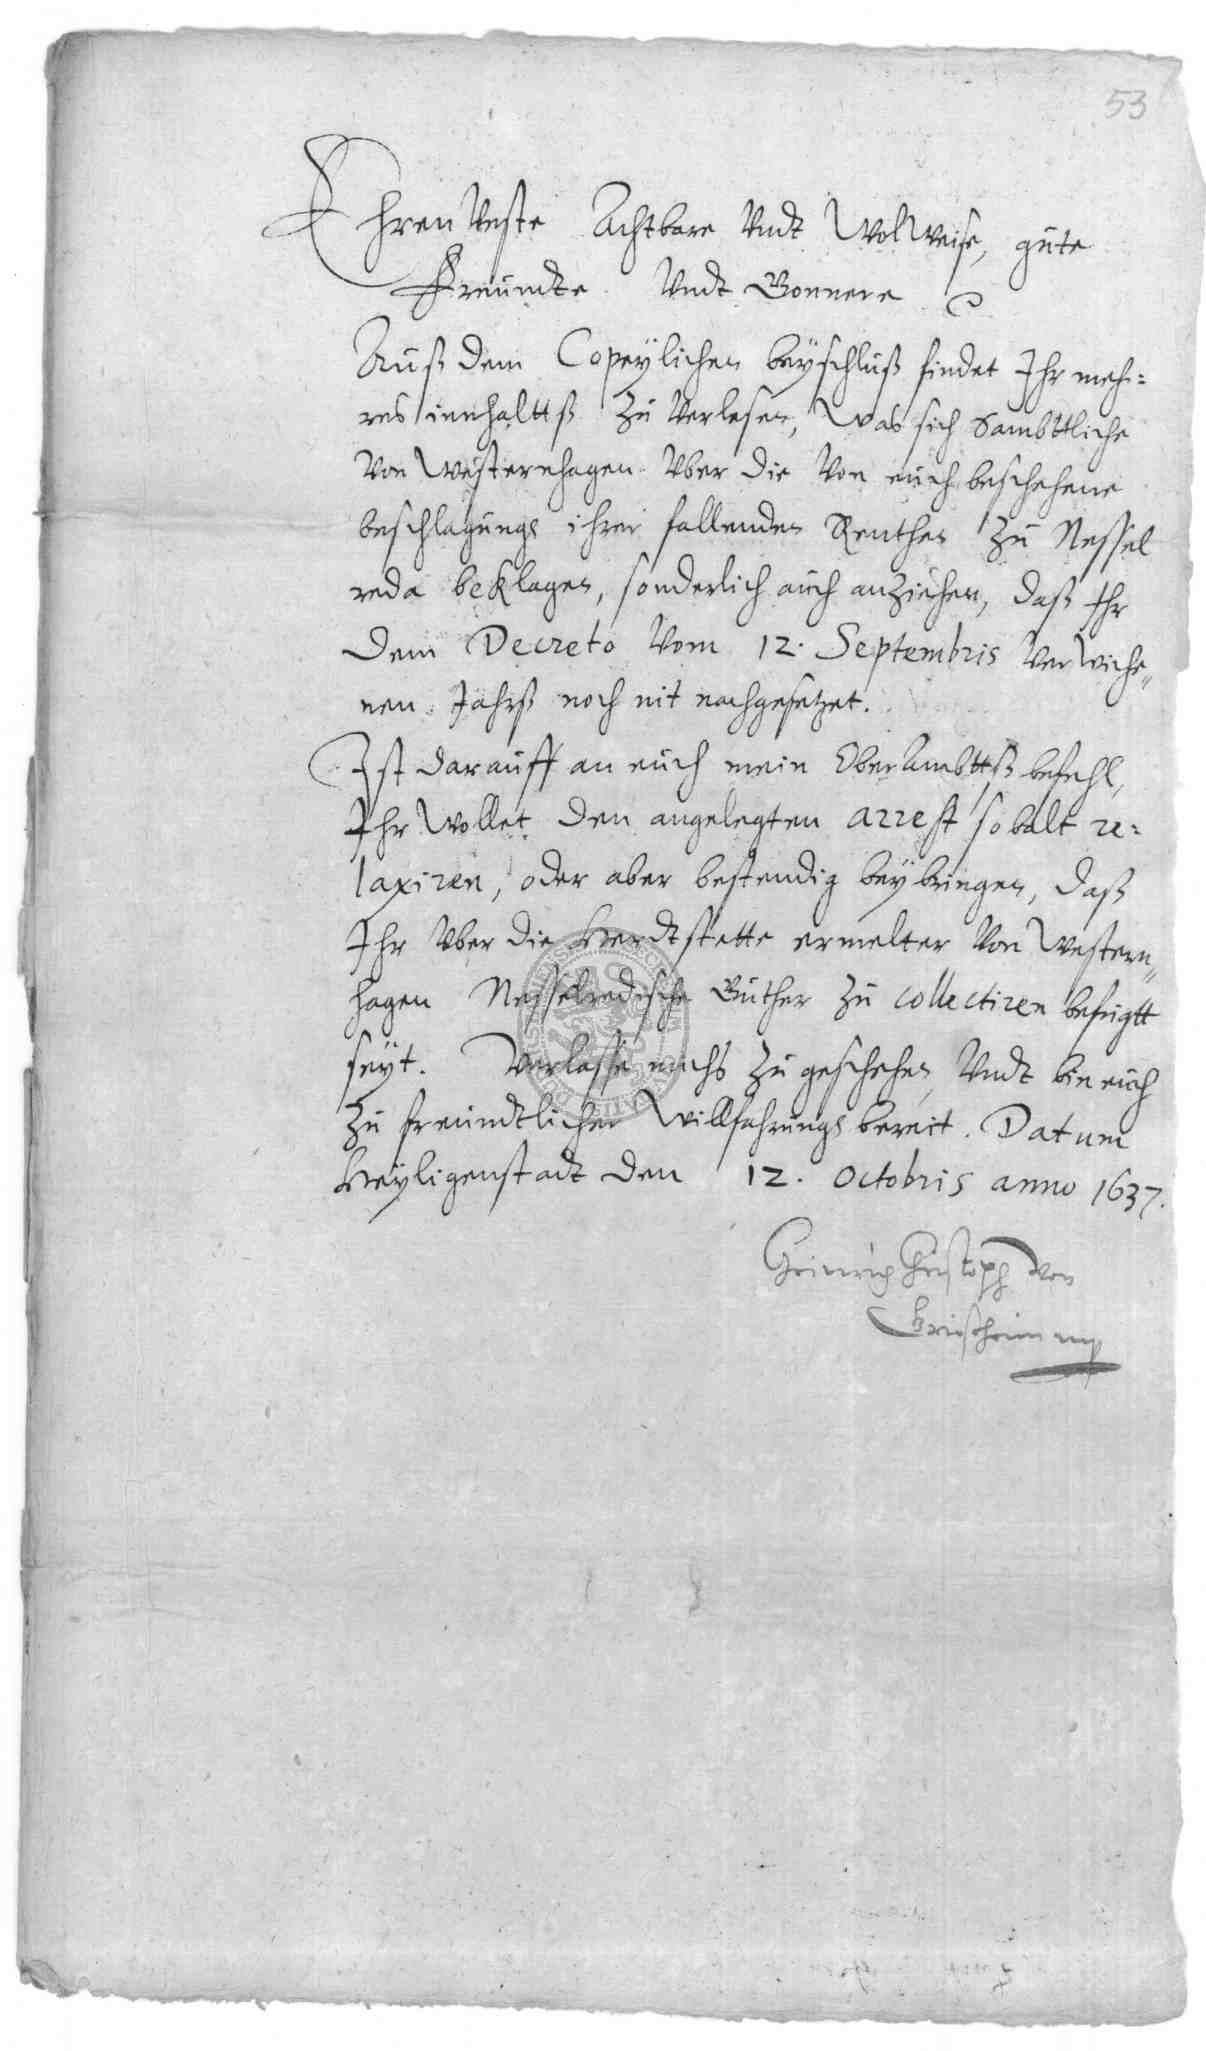 53
EhrenVeste Achtbare Vndt WolWeise, gute
Freundte Vndt Gonnere
Auß dem Copeylichen beyschluß findet Ihr meh=
res innhaltß Zu Verlesen, Was sich Sambttliche
Von Westernhagen Vber die Von euch beschehene
beschlagung ihrer fallenden Renthen Zu Nessel
reda beklagen, sonderlich auch anziehen, daß Ihr
dem Decreto Vom 12. Septembris VerWiche„
nen Jahrß noch nit nachgesetzet.
Ist darauff an euch mein OberAmbttß befehl,
Ihr Wollet den angelegten arrest sobalt re=
laxiren, oder aber bestendig beybringen, daß
Ihr Vber die Herdtstette ermelter Von Western„
hagen Nesselredische Guther Zu collectiren befugtt
seyt. Verlasse michs Zu geschehen Vndt bin euch
Zu freundtlicher Willfahrung bereit. Datum
Heyligenstadt den 12. Octobris anno 1637.
Heinrich Christoph von
Griesheim mp